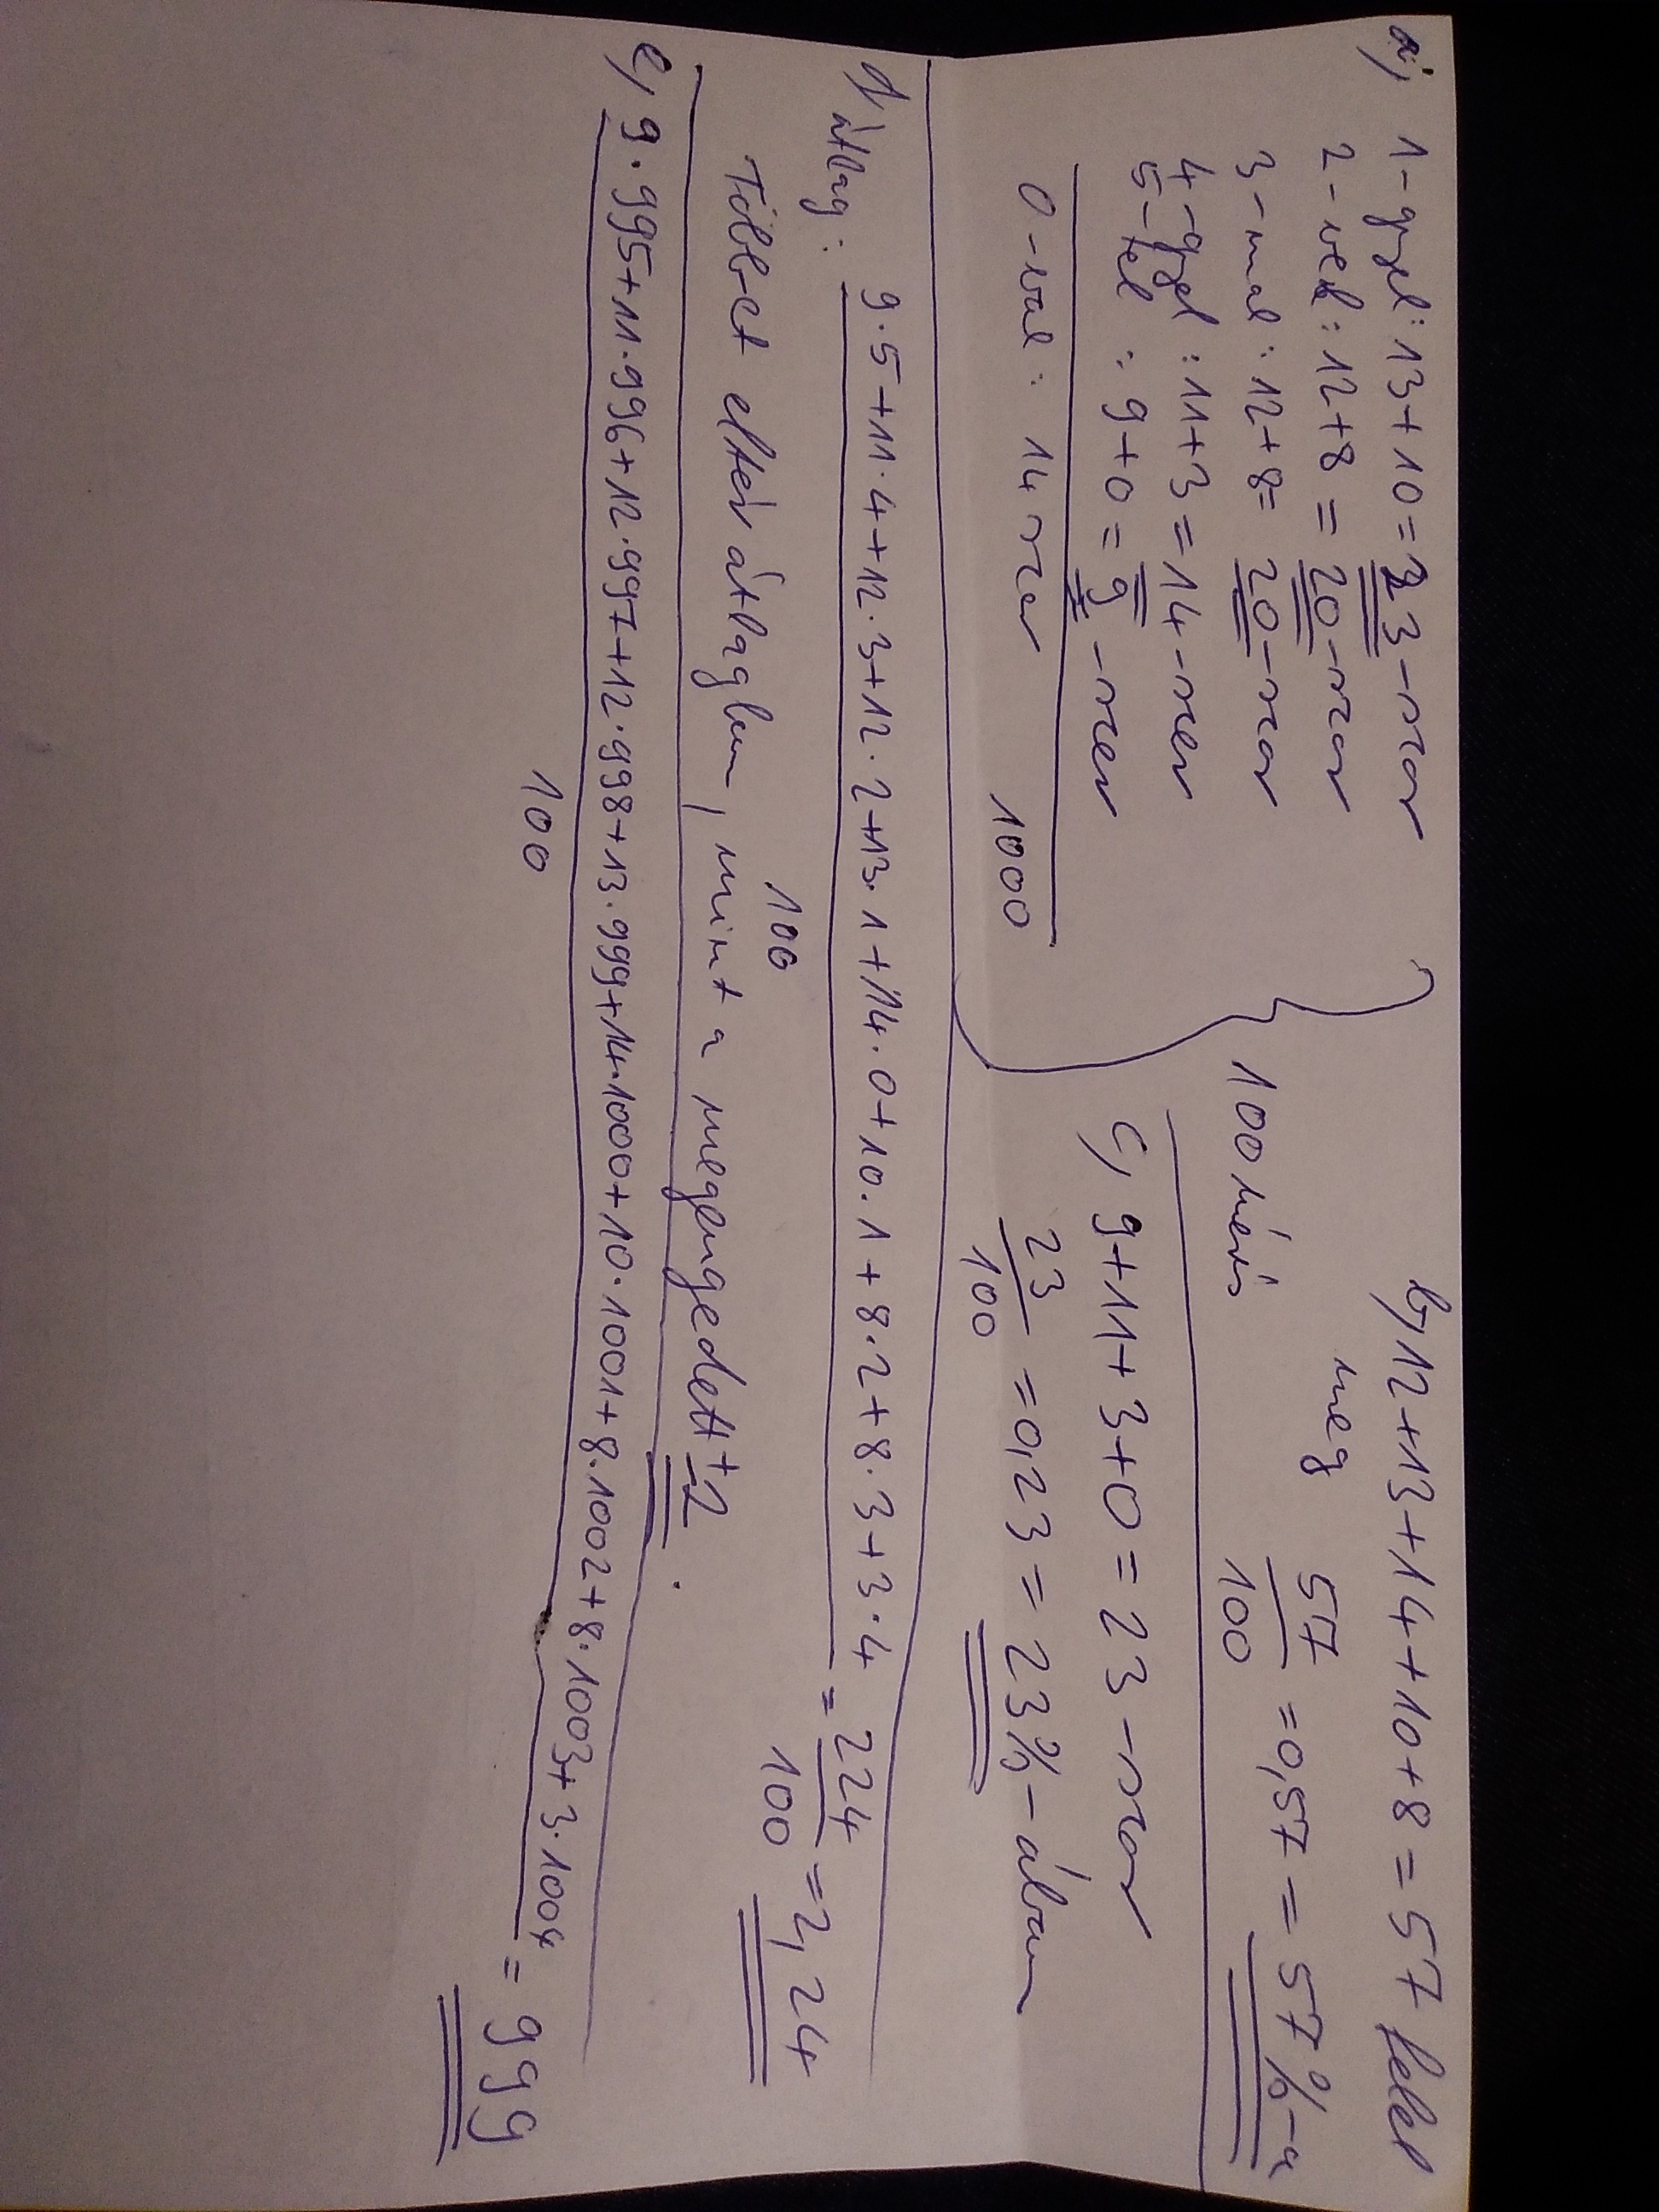 a), 1-gyel: 13+10=23-szor
2-vel: 12+8=20-szor
3-mal: 12+8=20-szor
4-gyel: 11+3=14-szer
5-tel: 9+0=9-szer
0-val: 14-szer 1000
100 mérés
b), 12+13+14+10+8=57 felel
meg 57/100 =0,57=57%-a
c), 9+11+3+0=23-szor
23/100 =0,23=23%-ában
d, átlag: 9·5+11·4+12·3+12·2+13·1+14·0+10·1+8·2+8·3+3·4 = 224/100 =2,24
100
Többet eltér átlagban, mint a megengedett ±2.
e, 9·995+11·996+12·997+12·998+13·999+14·1000+10·1001+8·1002+8·1003+3·1004 = 999
100